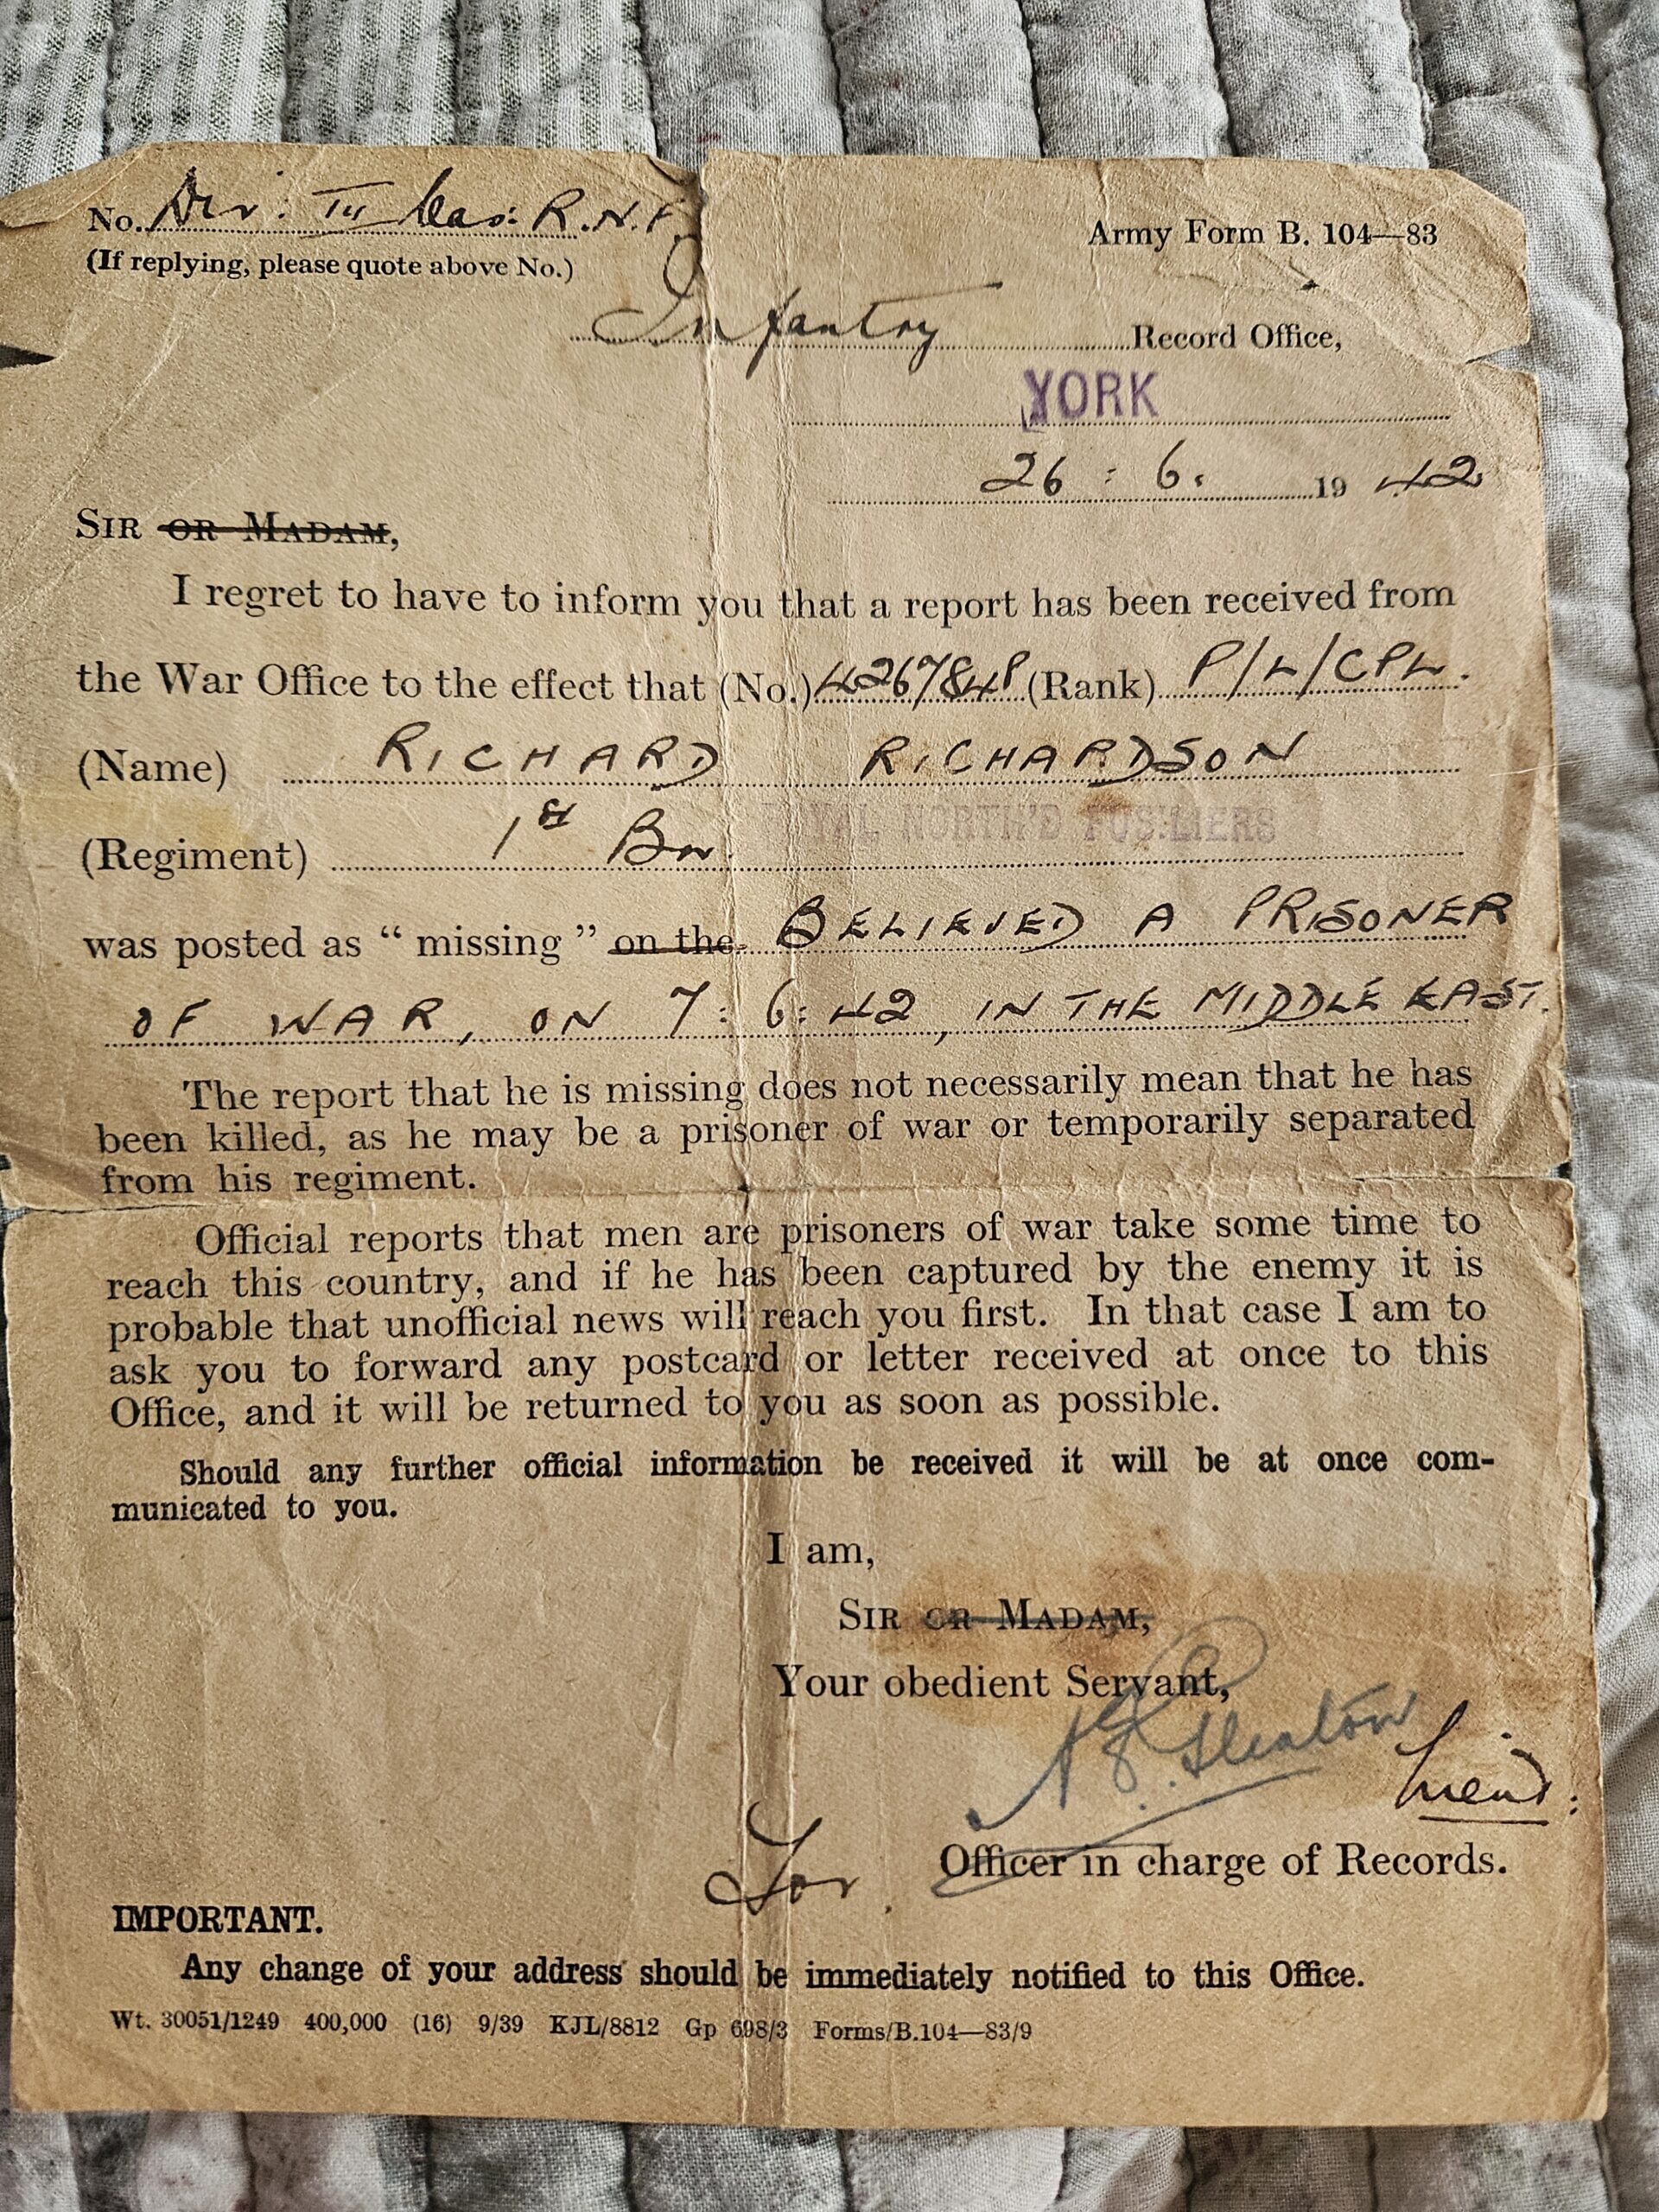 No. Div: III Cas: R.N.F.
Army Form B. 104—83
(If replying, please quote above No.)
Infantry Record Office,
YORK
26 : 6. 1942
SIR OR MADAM,
I regret to have to inform you that a report has been received from
the War Office to the effect that (No.) 4267848 (Rank) P/L/CPL.
(Name) RICHARD RICHARDSON
(Regiment) 1st Bn. NORTH'D FUSILIERS
was posted as “ missing ” on the BELIEVED A PRISONER
OF WAR, ON 7:6:42, IN THE MIDDLE EAST.
The report that he is missing does not necessarily mean that he has
been killed, as he may be a prisoner of war or temporarily separated
from his regiment.
Official reports that men are prisoners of war take some time to
reach this country, and if he has been captured by the enemy it is
probable that unofficial news will reach you first. In that case I am to
ask you to forward any postcard or letter received at once to this
Office, and it will be returned to you as soon as possible.
Should any further official information be received it will be at once com-
municated to you.
I am,
SIR OR MADAM,
Your obedient Servant,
Lieut:
For Officer in charge of Records.
IMPORTANT.
Any change of your address should be immediately notified to this Office.
Wt. 30051/1249 400,000 (16) 9/39 KJL/8812 Gp 698/3 Forms/B.104—83/9